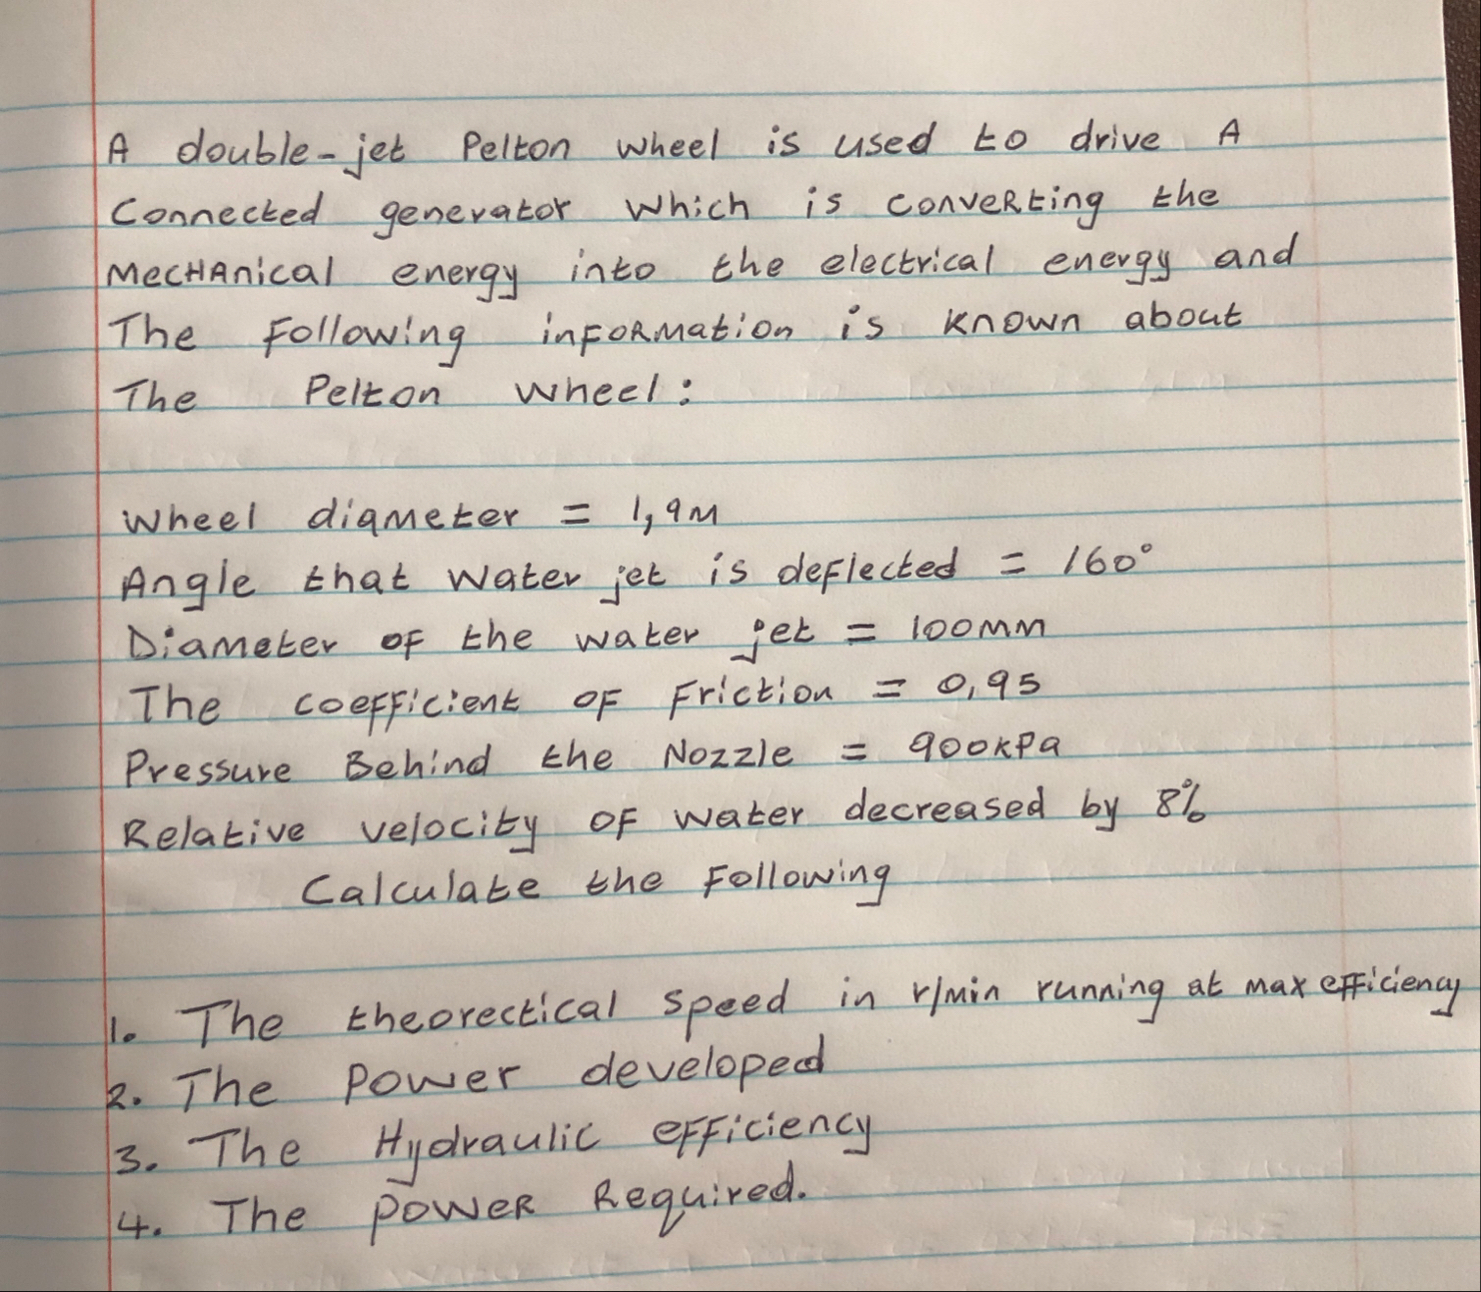 A double-jet Pelton wheel is used to drive A
Connected generator which is converting the
Mechanical energy into the electrical energy and
The Following information is known about
The Pelton wheel:
Wheel diameter = 1,9m
Angle that water jet is deflected = 160°
Diameter of the water jet = 100mm
The coefficient of Friction = 0,95
Pressure Behind the Nozzle = 900kPa
Relative velocity of water decreased by 8%
Calculate the Following
1. The theorectical speed in r/min running at max efficiency
2. The Power developed
3. The Hydraulic efficiency
4. The power Required.